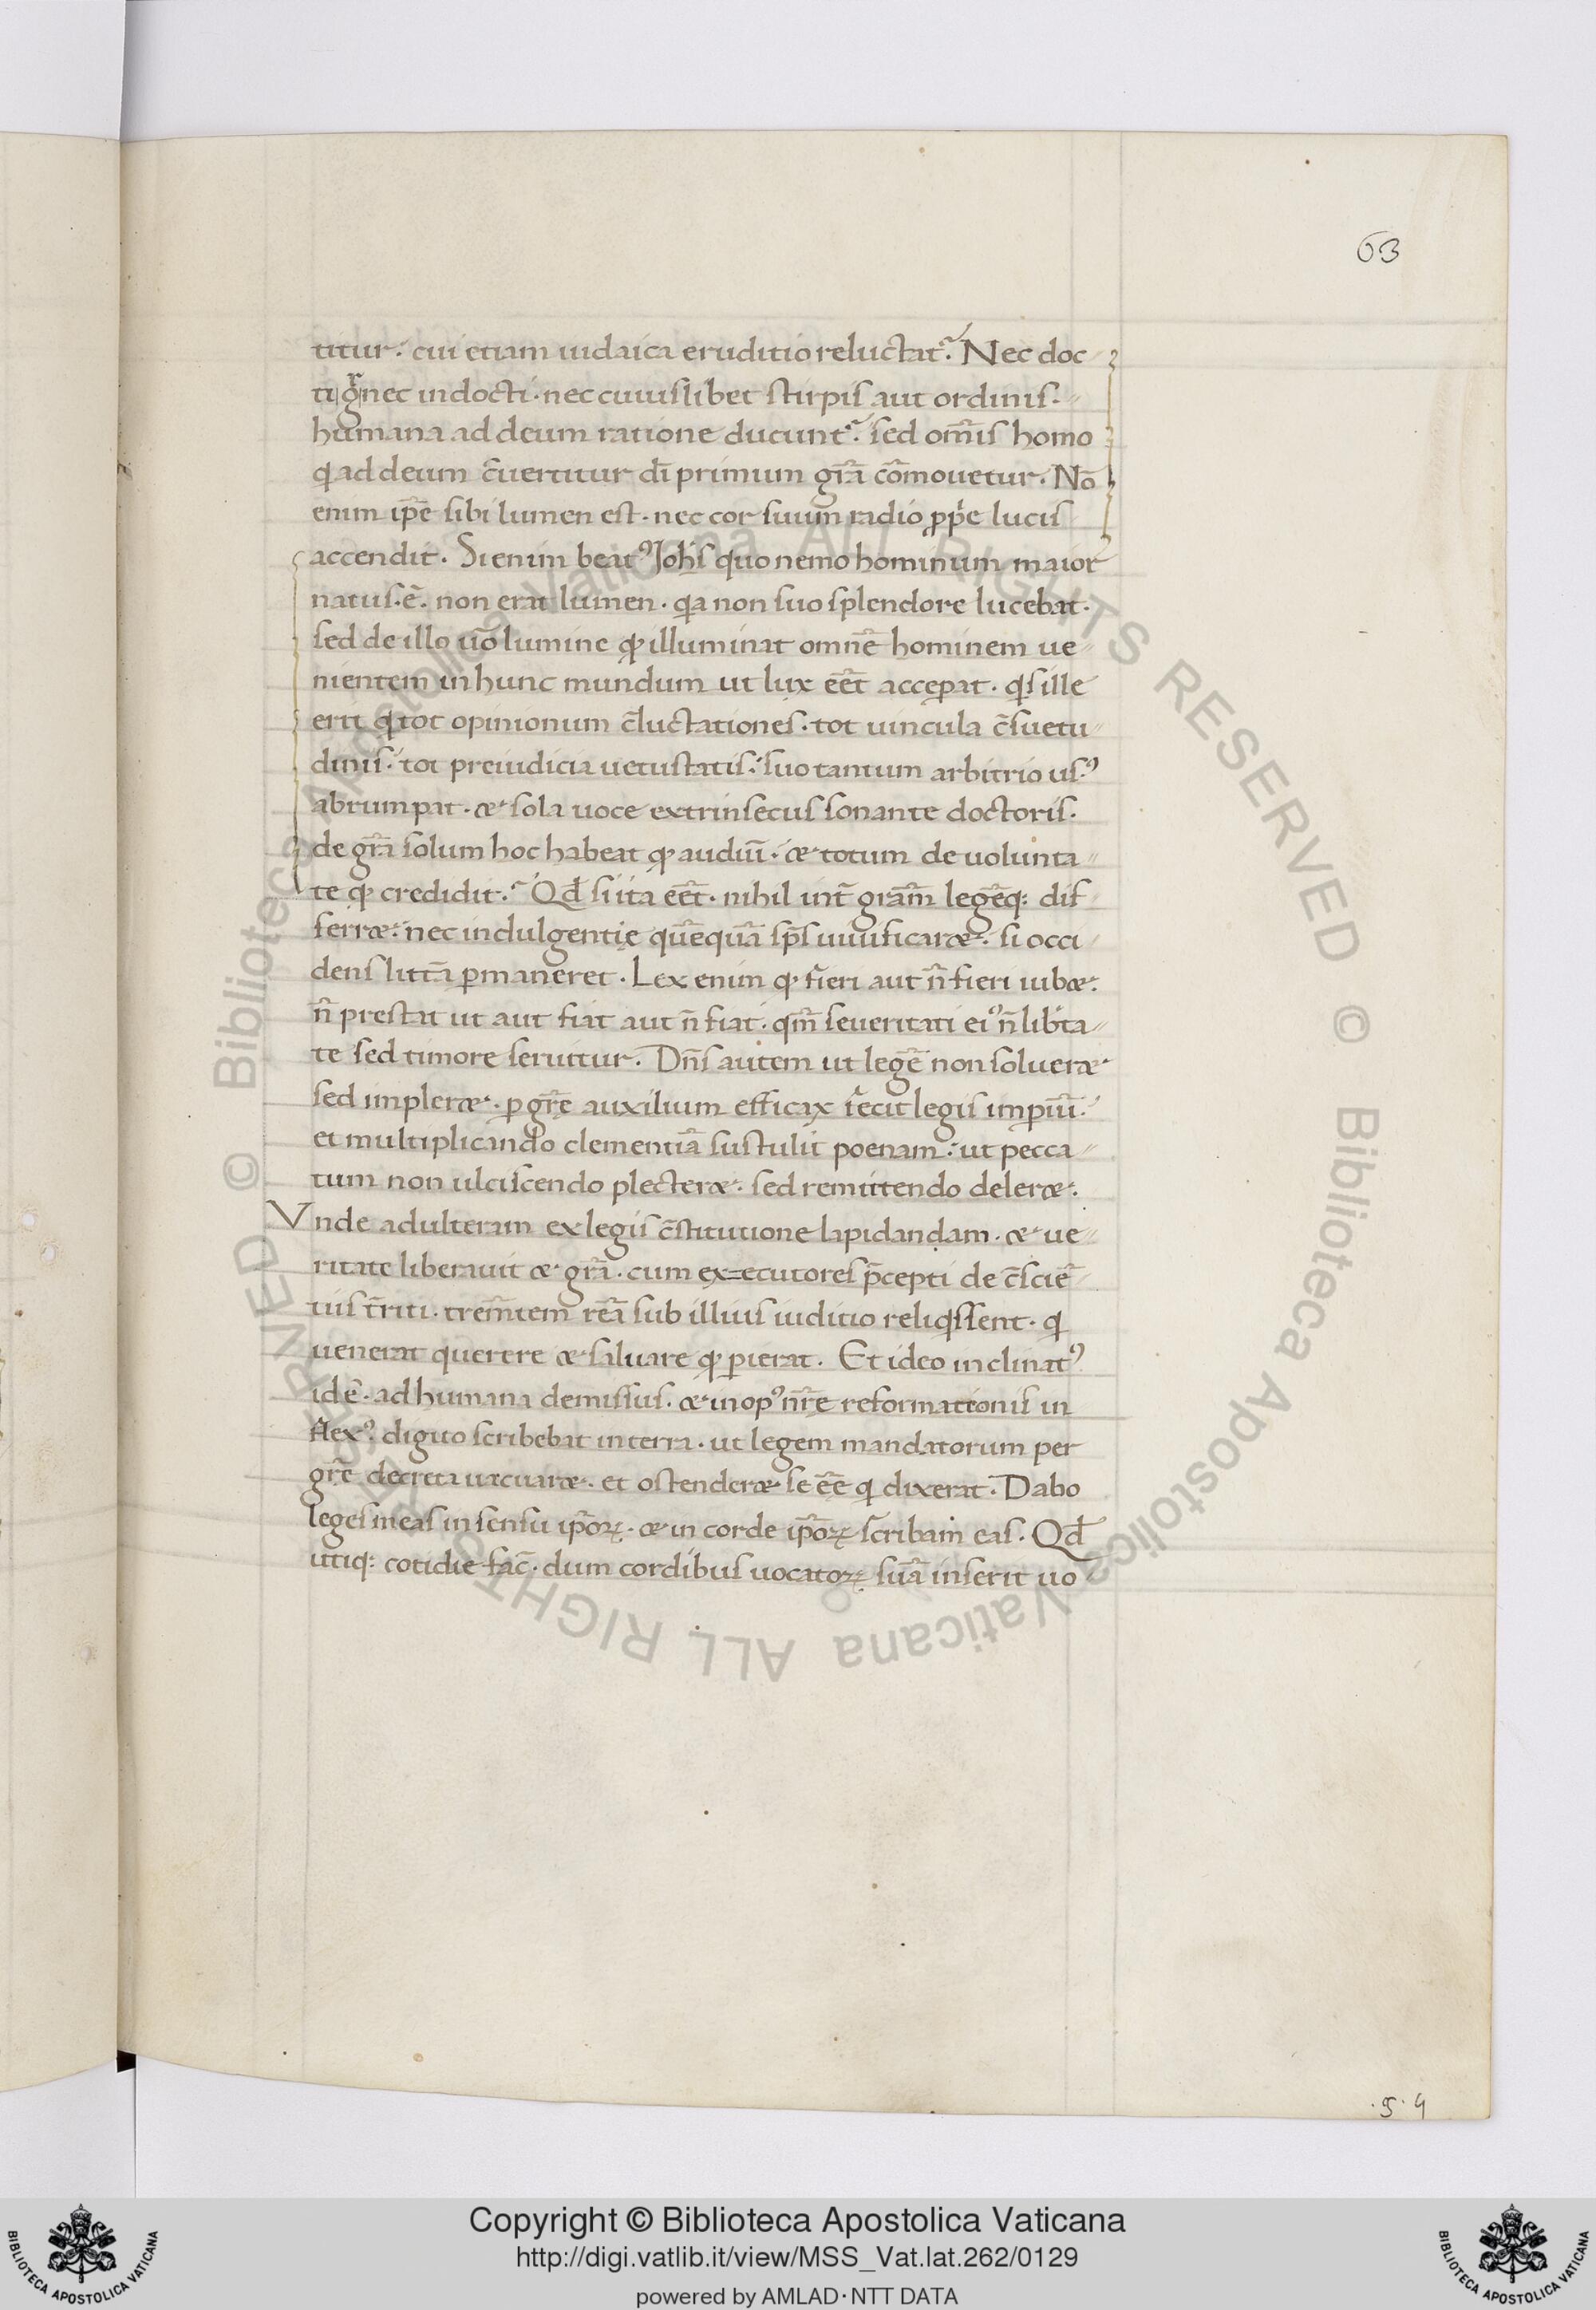 63
titur. cui etiam iudaica eruditio reluctat᷑. Nec doc
ti gͬ nec indocti. nec cuiuslibet stirpis aut ordinis.
humana ad deum ratione ducunt᷑. sed om̅is homo
qͥ ad deum c̅uertitur dī primum gr̅a co̅mouetur. No̅
enim ip̅e sibi lumen est. nec cor suum radio ꝓpͥe lucis
accendit. Si enim beatꝰ Joh̅s quo nemo hominum maior
natus. e̅. non erat lumen. qͥa non suo splendore lucebat.
sed de illo uo̅ lumine qͩ illuminat omne̅ hominem ue
nientem in hunc mundum ut lux ee̅t acceꝑat. qͥs ille
erit qͥ tot opinionum c̅luctationes. tot uincula c̅suetu
dinis. tot preiudicia uetustatis. suo tantum arbitrio usꝰ
abrumpat. & sola uoce extrinsecus sonante doctoris.
de gr̅a solum hoc habeat qͩ audiu̅. & totum de uolunta
te qͩ credidit. Qd̅ si ita ee̅t. nihil int̅ gra̅m lege̅q: dif
ferr&. nec indulgentię que̅qua̅ sp̅s uiuificar&. si occi
dens litt̅a ꝑmaneret. Lex enim qͩ fieri aut n̅ fieri iub&.
n̅ prestat ut aut fiat aut n̅ fiat. qm̅ seueritati eiꝰ n̅ lib̅ta
te sed timore seruitur. Dn̅s autem ut lege̅ non soluer&
sed impler&. ꝑ gr̅e auxilium efficax fecit legis imꝑiu̅.
et multiplicando clementia̅ sustulit poenam: ut pecca
tum non ulciscendo plecter&. sed remittendo deler&.
Vnde adulteram ex legis c̅stitutione lapidandam. & ue
ritate liberauit & gr̅a. cum ex=ecutores p̅cepti de c̅scie̅
tiis t̅riti. trem̅tem rea̅ sub illius iuditio reliqͥssent. qͥ
uenerat querere & saluare qͩ ꝑierat. Et ideo inclinatꝰ
id e̅. ad humana demissus. & in opꝰ nr̅e reformationis in
flexꝰ. digito scribebat in terra. ut legem mandatorum per
gr̅e decreta uacuar&. et ostender& se ee̅ qͥ dixerat. Dabo
leges meas in sensu ip̅oꝝ. & in corde ip̅oꝝ scribam eas. Qd̅
utiq: cotidie fac̅. dum cordibus uocatoꝝ sua̅ inserit uo
.5. 4
Copyright © Biblioteca Apostolica Vaticana
http://digi.vatlib.it/view/MSS_Vat.lat.262/0129
powered by AMLAD·NTT DATA